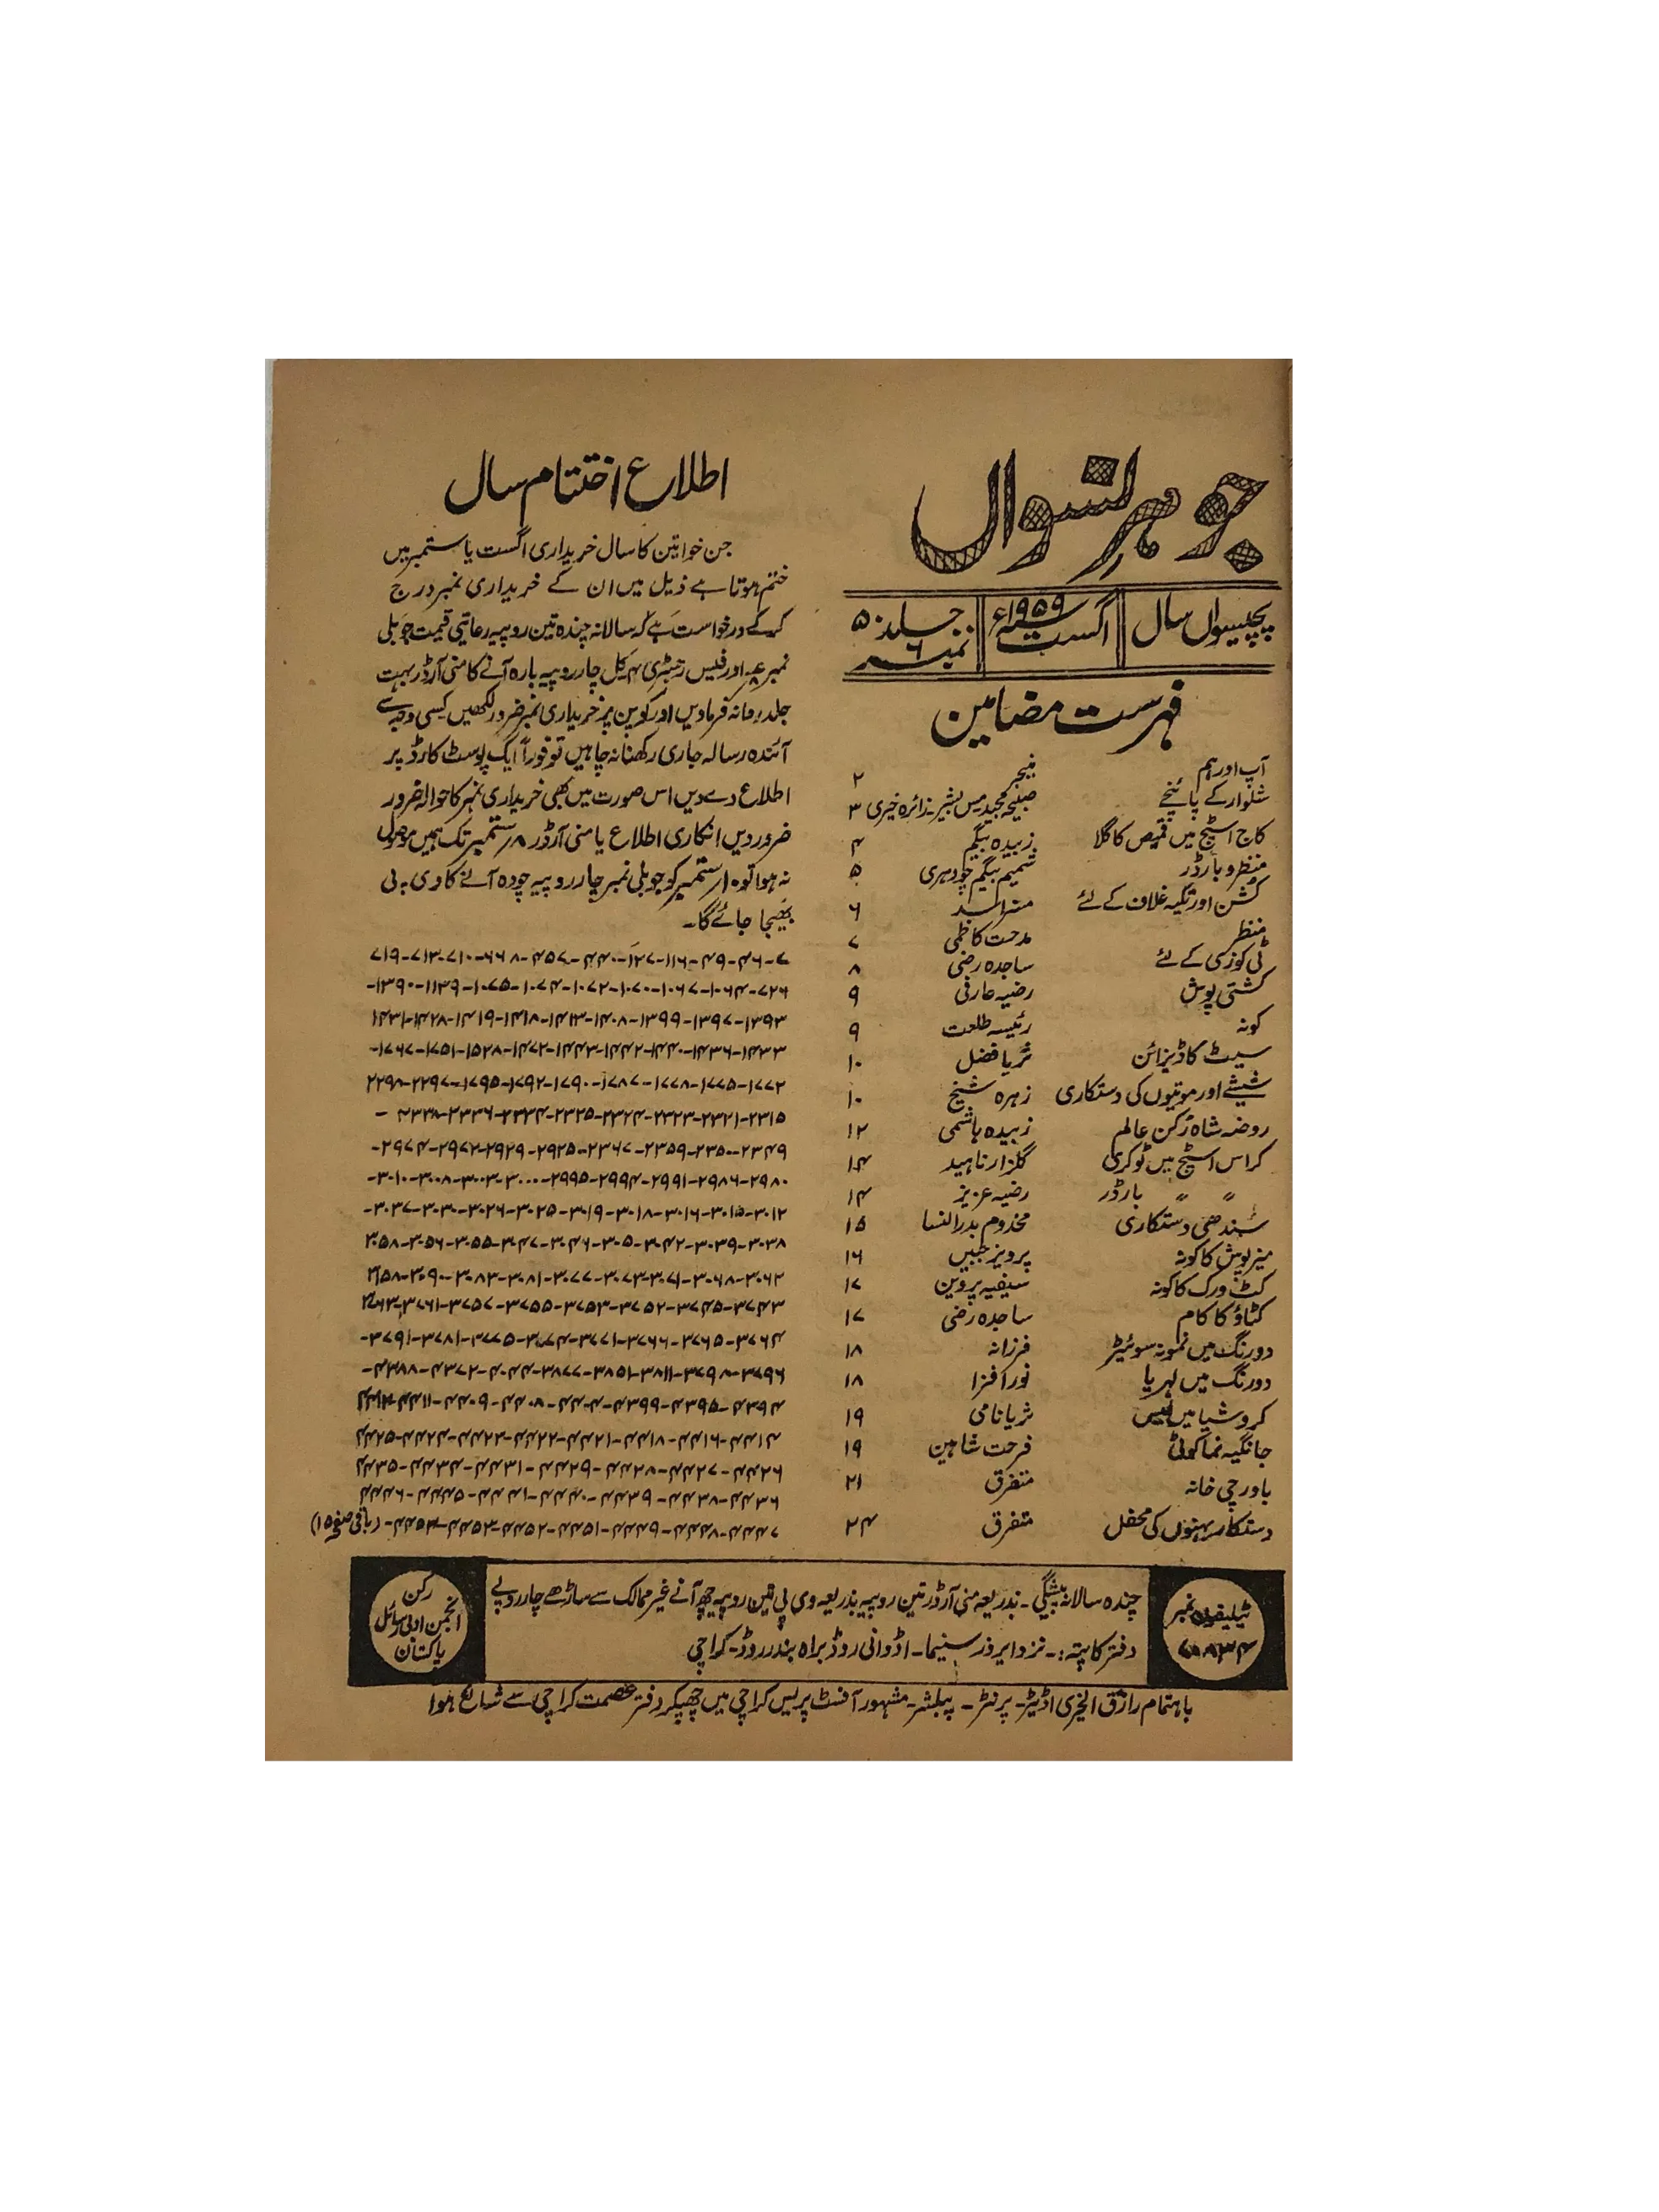 جوہر نسواں
پچیسواں سال
اگست ۱۹۵۹ء
جلد ۵۰
نمبر ۶
فہرست مضامین
آپ اور ہم منیجر ۲
شلوار کے پائنچے صبیحہ مجید مس بشیر۔ زائرہ خیری ۳
کاج اسٹیچ میں قمیص کا گلا زبیدہ بیگم ۴
منظر و بارڈر شمیم بیگم چودہری ۵
کشن اور تکیہ غلاف کے لئے ۶
منظر مدحت کاظمی ۷
ٹی کوزی کے لئے ساجدہ رضی ۸
کشتی پوش رضیہ عارفی ۹
کونہ رئیسہ طلعت ۹
سیٹ کا ڈیزائن ثریا فضل ۱۰
شیشے اور موتیوں کی دستکاری زہرہ شیخ ۱۰
روضہ شاہ رُکن عالم زبیدہ ہاشمی ۱۲
کراس اسٹیچ میں ٹوکری گلزار ناہید ۱۴
〃 〃 بارڈر رضیہ عزیز ۱۴
سندھی دستکاری مخدوم بدر النسا ۱۵
میز پوش کا کونہ پرویز جبیں ۱۶
کٹ ورک کا کونہ سیفیہ پروین ۱۷
کٹاؤ کا کام ساجدہ رضی ۱۷
دورنگ میں نمونہ سوئیٹر فرزانہ ۱۸
دورنگ میں لہریا نور افزا ۱۸
کروشیا میں لیس ثریا نامی ۱۹
جانگیہ نما کوٹی فرحت شاہین ۱۹
باورچی خانہ متفرق ۲۱
دستکار بہنوں کی محفل متفرق ۲۴
اطلاع اختتام سال
جن خواتین کا سال خریداری اگست یا ستمبر میں
ختم ہوتا ہے ذیل میں ان کے خریداری نمبر درج
کرکے درخواست ہے کہ سالانہ چندہ تین روپیہ رعایتی قیمت جوبلی
نمبر اور فیس رجسٹری کل چار روپیہ بارہ آنے کا منی آرڈر بہت
جلد روانہ فرمادیں اور کوپن پر خریداری نمبر ضرور لکھیں کسی وجہ سے
آئندہ رسالہ جاری رکھنا نہ چاہیں تو فوراً ایک پوسٹ کارڈ پر
اطلاع دے دیں اس صورت میں بھی خریداری نمبر کا حوالہ ضرور
ضرور دیں انکاری اطلاع یا منی آرڈر ۸ ستمبر تک ہمیں موصول
نہ ہوا تو ۱۰ ستمبر کو جوبلی نمبر چار روپیہ چودہ آنے کا وی پی
بھیجا جائے گا۔
۷-۴۶-۴۹-۱۱۶-۱۲۷-۴۴۰-۴۵۷-۶۶۸-۷۱۰-۷۱۳-۷۱۹
۷۲۶-۱۰۶۴-۱۰۶۷-۱۰۷۰-۱۰۷۲-۱۰۷۴-۱۰۷۵-۱۱۳۹-۱۳۹۰-
۱۳۹۳-۱۳۹۷-۱۳۹۹-۱۴۰۸-۱۴۱۳-۱۴۱۷-۱۴۱۹-۱۴۲۸-۱۴۳۱
۱۴۳۳-۱۴۳۶-۱۴۴۰-۱۴۴۲-۱۴۴۳-۱۴۷۲-۱۵۲۸-۱۷۵۱-۱۷۶۷-
۱۷۷۲-۱۷۷۵-۱۷۷۸-۱۷۸۷-۱۷۹۰-۱۷۹۲-۱۷۹۵-۲۲۹۷-۲۲۹۸
۲۳۱۵-۲۳۲۱-۲۳۲۳-۲۳۲۴-۲۳۲۵-۲۳۳۴-۲۳۳۶-۲۳۳۸-
۲۳۴۹-۲۳۵۰-۲۳۵۹-۲۳۶۷-۲۹۲۵-۲۹۲۹-۲۹۷۲-۲۹۷۴-
۲۹۸۰-۲۹۸۶-۲۹۹۱-۲۹۹۴-۲۹۹۵-۳۰۰۰-۳۰۰۳-۳۰۰۸-۳۰۱۰-
۳۰۱۲-۳۰۱۵-۳۰۱۶-۳۰۱۸-۳۰۱۹-۳۰۲۵-۳۰۲۶-۳۰۳۰-۳۰۳۷-
۳۰۳۸-۳۰۳۹-۳۰۴۲-۳۰۵-۳۰۴۶-۳۰۴۷-۳۰۵۵-۳۰۵۶-۳۰۵۸
۳۰۶۲-۳۰۶۸-۳۰۷۱-۳۰۷۳-۳۰۷۷-۳۰۸۱-۳۰۸۳-۳۰۹۰
۳۷۴۳-۳۷۴۵-۳۷۵۲-۳۷۵۳-۳۷۵۵-۳۷۵۷-۳۷۶۱-۳۷۶۳
۳۷۶۴-۳۷۶۵-۳۷۶۶-۳۷۷۱-۳۷۷۴-۳۷۷۵-۳۷۸۱-۳۷۹۱-
۳۷۹۶-۳۷۹۸-۳۸۱۱-۳۸۵۱-۳۸۷۷-۴۰۴۴-۴۳۷۲-۴۳۸۷-
۴۳۹۴-۴۳۹۵-۴۳۹۹-۴۴۰۷-۴۴۰۹-۴۴۱۱
۴۴۱۴-۴۴۱۶-۴۴۱۷-۴۴۲۱-۴۴۲۲-۴۴۲۳-۴۴۲۴-۴۴۲۵
۴۴۲۶-۴۴۲۷-۴۴۲۸-۴۴۲۹-۴۴۳۱-۴۴۳۴-۴۴۳۵
۴۴۳۶-۴۴۳۸-۴۴۳۹-۴۴۴۰-۴۴۴۱-۴۴۴۵-۴۴۴۶
۴۴۴۷-۴۴۴۸-۴۴۴۹-۴۴۵۱-۴۴۵۲-۴۴۵۳-۴۴۵۴- (باقی صفحہ ۱۵)
ٹیلیفون نمبر
چندہ سالانہ پیشگی۔ بذریعہ منی آرڈر تین روپیہ بذریعہ وی پی تین روپیہ چھ آنے غیر ممالک سے ساڑھے چار روپے
دفتر کا پتہ:۔ نزد ایروز سنیما۔ اڈوانی روڈ براہ بندر روڈ۔ کراچی
رکن
انجمن ادبی رسائل
پاکستان
باہتمام رازق الخیری اڈیٹر۔ پرنٹر۔ پبلشر۔ مشہور آفسٹ پریس کراچی میں چھپکر دفتر عصمت کراچی سے شایع ہوا